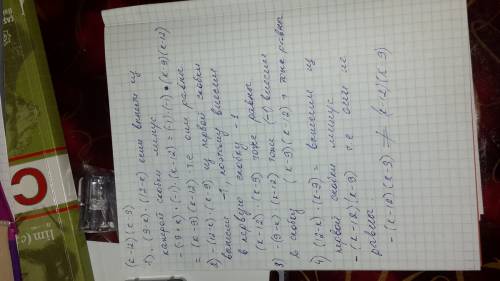 (к-12)(к-9)
1) -(9-к)·(12-к) если вынести из
каждой скобки минус
-(9-к)·(-1)·(к-12)=(-)·(-)·(к-9)(к-12)
=(к-9)(к-12) т.е они равны
2) -(12-к)·(к-9) из первой скобки
вынесем -1, поэтому внесем
в первую скобку -1
(к-12)·(к-9) тоже равны
3) -(9-к)·(к-12) тоже (-1) внесем
в скобку (к-9)(к-12) тоже равна
4) (12-к)·(к-9)= вынесем из
первой скобки минус
-(к-12)(к-9) т.е они не
равна
-(к-12)(к-9) ≠ (к-12)(к-9)
C
lim